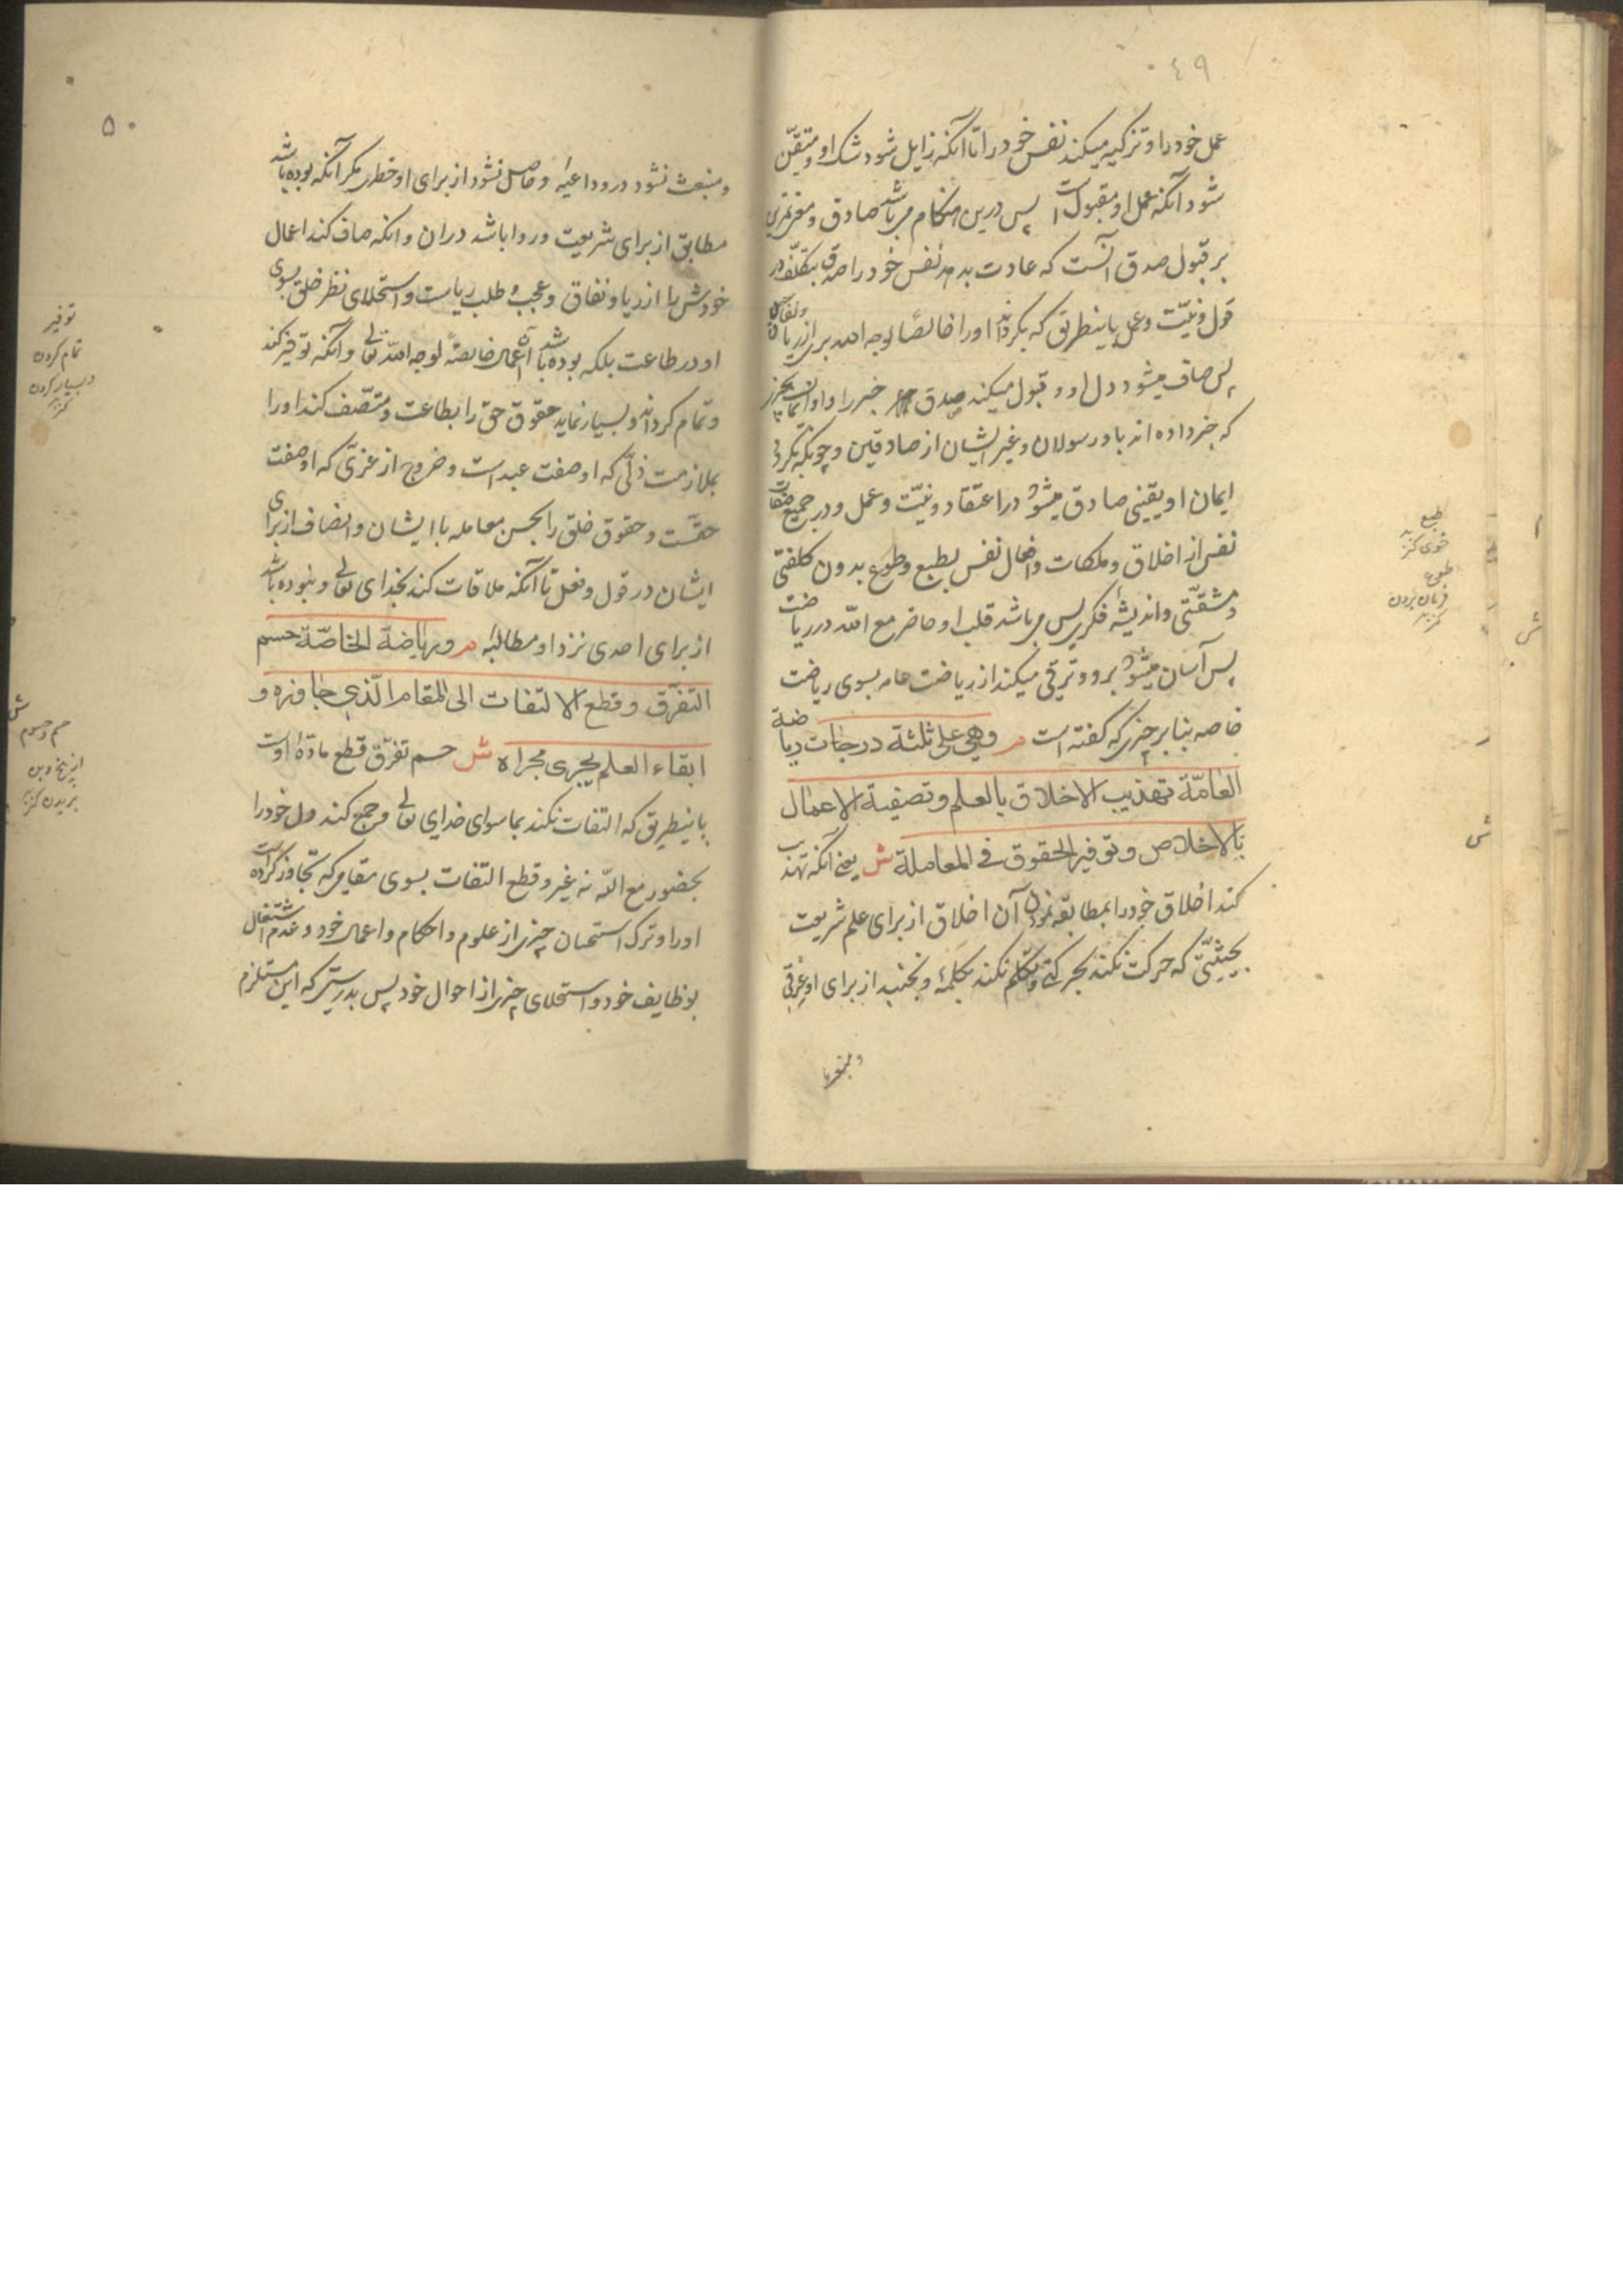 ٤٩
عمل خود را و تزکیه میکند نفس خود را تا آنکه زایل شود شک او و متیقّن
شود آنکه عمل او مقبول است پس درین هنگام می باشد صادق و معنی تمرین
بر قبول صدق آنست که عادت بدهد نفس خود را صدق بتکلّف در
قول و نیّت و عمل باینطریق که بگرداند او را خالصًا لوجه الله بری از ریا و نفاق
پس صاف میشود دل او و قبول میکند صدق خبر را و ایمان بچیزی
که خبر داده اند باو رسولان و غیر ایشان از صادقین و چونکه بگردد
ایمان او یقینی صادق میشود در اعتقاد و نیّت و عمل و در جمیع صفات
نفس از اخلاق و ملکات و افعال نفس بطبع و طوع بدون کلفتی
و مشقّتی و اندیشهٔ فکری پس می باشد قلب او حاضر مع الله در ریاضت
پس آسان میشود برو و ترقی میکند از ریاضت عامه بسوی ریاضت
خاصه بنابر چیزی که گفته است م وهی علی ثلثة درجات ریاضة
العامّة تهذیب الاخلاق بالعلم وتصفیة الاعمال
بالاخلاص وتوفیر الحقوق فی المعاملة ش یعنی آنکه تهذیب
کند اخلاق خود را بمطابقه نمودن آن اخلاق از برای علم شریعت
بحیثیّتی که حرکت نکند بحرکتی و تکلّم نکند بکلمهٔ و نجنبد از برای او عرقی
طبع
خوی کنز
طوع
فرمان بردن
کنز
ش
ش
۵۰
و منبعث نشود درو داعیهٔ و حاصل نشود از برای او خطری مگر آنکه بوده باشد
مطابق از برای شریعت و روا باشد در ان و انکه صاف کند اعمال
خودش را از ریا و نفاق و عجب و طلب ریاست و استحلای نظر خلق بسوی
او در طاعت بلکه بوده باشد اعمال خالصة لوجه الله تعالی و آنکه توفیر کند
و تمام گرداند و بسیار نماید حقوق حق را بطاعت و متّصف کند او را
بملازمت ذلّی که او صفت عبد است و خروج از عزّتی که او صفت
حقّست و حقوق خلق را بحسن معامله با ایشان و انصاف از برای
ایشان در قول و فعل تا آنکه ملاقات کند بخدای تعالی و نبوده باشد
از برای احدی نزد او مطالبهٔ م وریاضة الخاصّة حسم
التفرّق وقطع الالتفات الی المقام الّذی جاوزه و
ابقاء العلم یجری مجراه ش حسم تفرّق قطع مادّهٔ اوست
باینطریق که التفات نکند بما سوای خدای تعالی و جمع کند دل خود را
بحضور مع الله نه غیر و قطع التفات بسوی مقامی که تجاوز کرده است
او را و ترک استحسان چیزی از علوم و احکام و اعمال خود و عدم اشتغال
بوظایف خود و استحلای چیزی از احوال خود پس بدرستی که این مستلزم
توفیر
تمام کردن
و بسیار کردن
کنز
ش
حسم و حسوم
از بیخ و بن
بریدن کنز